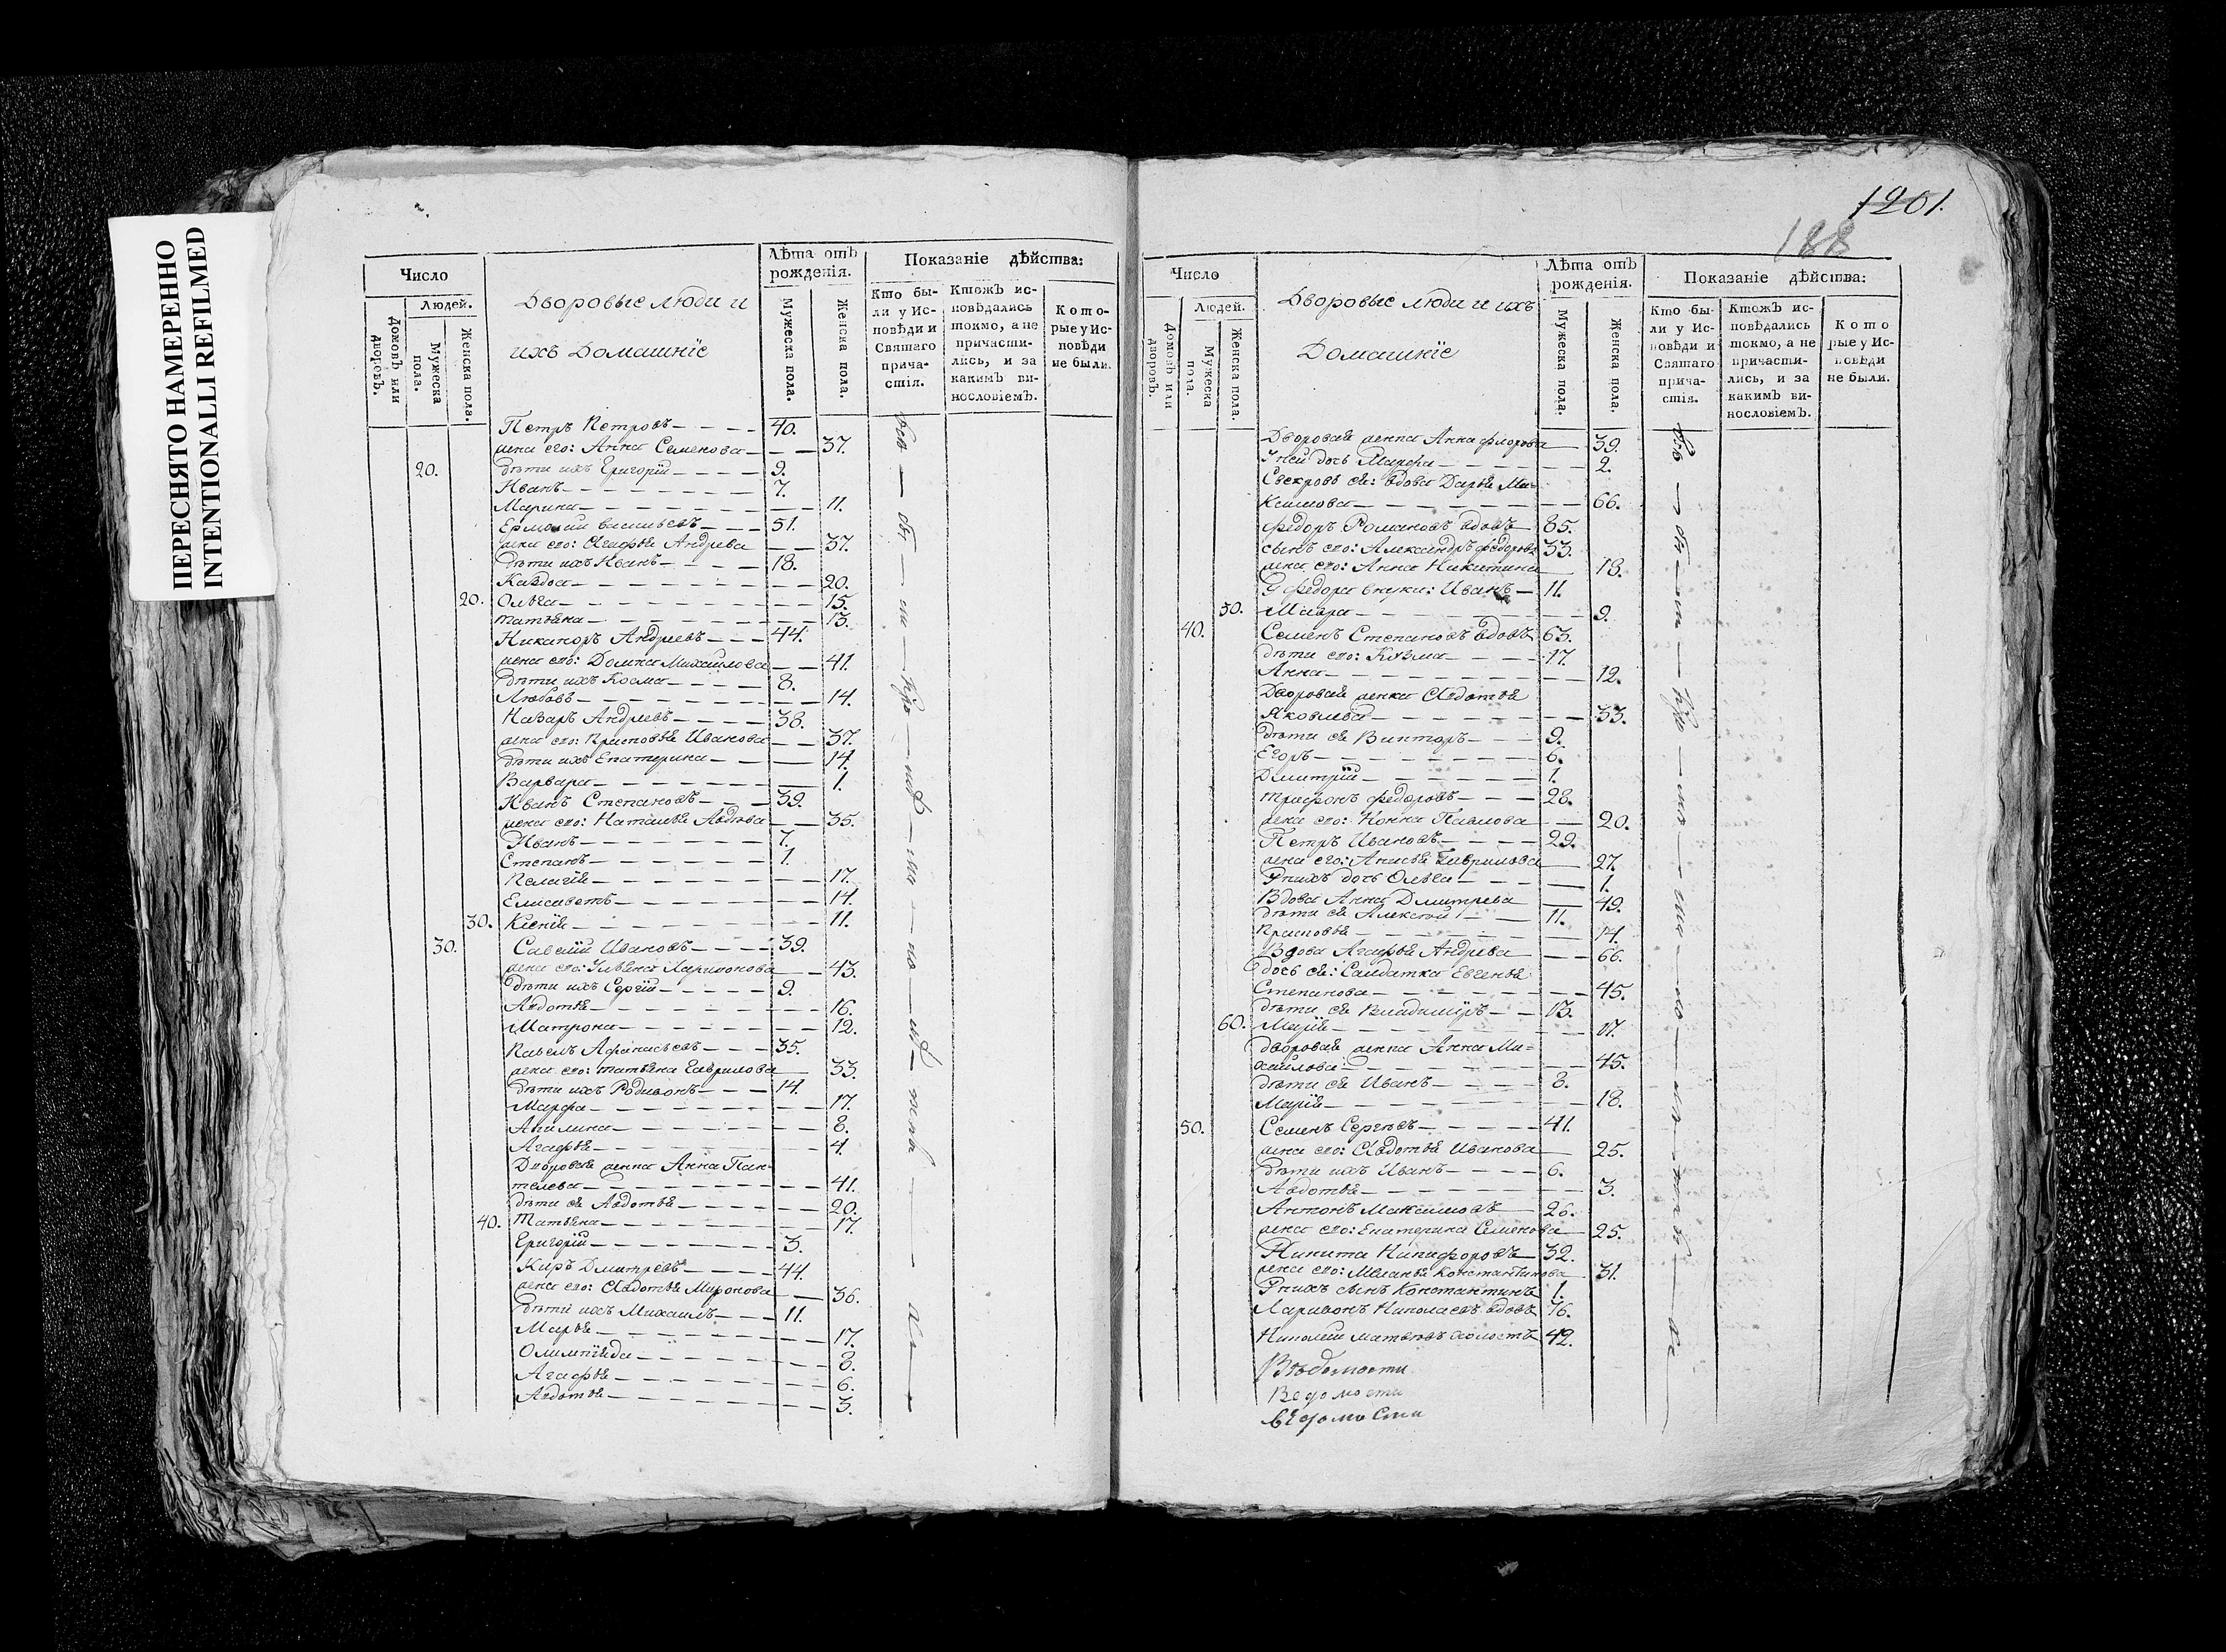 ПЕРЕСНЯТО НАМЕРЕННО
INTENTIONALLI REFILMED
Число
Людей.
Домовъ или дворовъ.
Мужеска пола.
Женска пола.
Дворовые люди и
ихъ Домашніе
Лѣта отъ рожденія.
Мужеска пола.
Женска пола.
Показаніе дѣйства:
Кто были у Исповѣди и Святаго причастія.
Ктожъ исповѣдались токмо, а не причастились, и за какимъ винословіемъ.
Которые у Исповѣди не были.
Петръ Петровъ 40.
жена его: Анна Семенова 37.
20. дѣти ихъ Григорій 9.
Иванъ 7.
Марина 11.
Ермолай Васильевъ 51.
жена его: Агафья Андрева 37.
дѣти ихъ Иванъ 18.
20.
20. Ольга 15.
Татьяна 13.
Никаноръ Андреевъ 44.
жена его: Домна Михаилова 41.
дѣти ихъ Косма 8.
Любовь 14.
Назаръ Андреевъ 38.
жена его: Прасковья Иванова 37.
дѣти ихъ Екатерина 14.
Варвара 1.
Иванъ Степановъ 39.
жена его: Наталья 35.
Иванъ 7.
Степанъ 1.
Пелагія 17.
Елисаветъ 14.
30. Ксенія 11.
30. Савелій Ивановъ 39.
жена его: Ульяна Ларионова 43.
дѣти ихъ Сергій 9.
Авдотья 16.
Матрона 12.
Павелъ Афанасьевъ 35.
жена его: Татьяна Гаврилова 33.
дѣти ихъ Родивонъ 14.
Марфа 17.
Акилина 8.
Агафья 4.
Дворовая женка Анна Пан-
телева 41.
дѣти ея Авдотья 20.
40. Татьяна 17.
Григорій 3.
Киръ Дмитревъ 44.
жена его: Авдотья Миронова 36.
дѣти ихъ Михаилъ 11.
Марья 17.
Олимпіяда 8.
Агафья 6.
Авдотья 3.
1201.
188
Число
Людей.
Домовъ или дворовъ.
Мужеска пола.
Женска пола.
Дворовые люди и ихъ
Домашніе
Лѣта отъ рожденія.
Мужеска пола.
Женска пола.
Показаніе дѣйства:
Кто были у Исповѣди и Святаго причастія.
Ктожъ исповѣдались токмо, а не причастились, и за какимъ винословіемъ.
Которые у Исповѣди не были.
Дворовая женка Анна Флорова 39.
У ней дочь Марфа 2.
Свекровь ея: вдова Дарья Ма-
ксимова 66.
Федоръ Романовъ вдовъ 85.
сынъ его: Александръ Федоровъ 33.
жена его: Анна Никитина 18.
У Федора внуки: Иванъ 11.
50. Мавра 9.
40. Семенъ Степановъ вдовъ 63.
дѣти его: Кузма 17.
Анна 12.
Дворовая женка Авдотья
Яковлева 33.
дѣти ея Викторъ 9.
Егоръ 6.
Дмитрій 1.
Трифонъ Федоровъ 28.
жена его: Нонна Павлова 20.
Петръ Ивановъ 29.
жена его: Анисья Гаврилова 27.
У нихъ дочь Ольга 1.
Вдова Анна Дмитрева 49.
дѣти ея Алексѣй 11.
Прасковья 14.
Вдова Агафья Андрева 66.
дочь ея: Салдатка Евгенья
Степанова 45.
дѣти ея Владиміръ 13.
60. Марія 17.
дворовая женка Анна Ми=
хаилова 45.
дѣти ея Иванъ 8.
Марія 18.
50. Семенъ Сергѣевъ 41.
жена его: Авдотья Иванова 25.
дѣти ихъ Иванъ 6.
Авдотья 3.
Антонъ Максимовъ 26.
жена его: Екатерина Семенова 25.
Никита Никифоровъ 32.
жена его: Меланья Константинова 31.
У нихъ сынъ Константинъ 1.
Ларивонъ Николаевъ вдовъ 76.
Николай Матвѣевъ холостъ 42.
Вѣдомости
Ведомости
ведомости